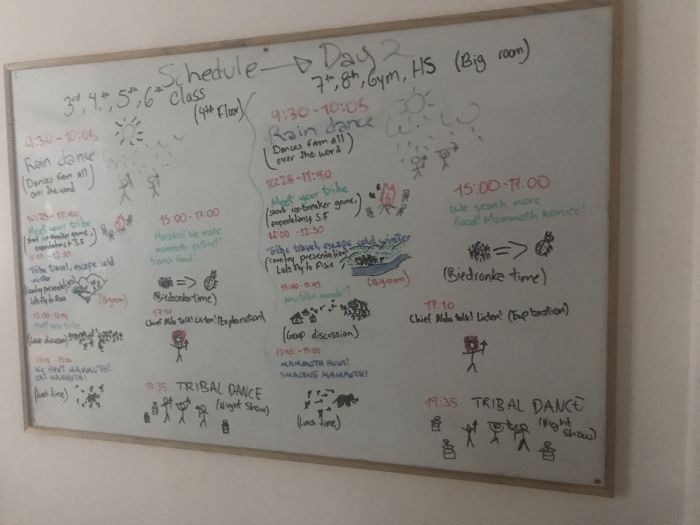 Schedule → Day 2
3rd, 4th, 5th, 6th class
(4th Floor)
9:30-10:05
Rain dance
(Dances from all
over the word)
10:25-11:40
Meet your tribe
(short ice-breaker game,
expectations, S.F
12:00-12:50
Tribe travel, escape cold
winter
(country presentation)
Lets fly to Asia
(Big room)
13:00-13:45
(Goup discussion)
13:45-15:00
WE HUNT MAMMOTH!
EAT MAMMOTH!
(lunch time)
15:00-17:00
Mistake! We make
mammoth extinct!
Search food!
(Biedronka time)
17:10
Chief Aldo talk! Listen! (Explanation)
19:35 TRIBAL DANCE
(Night Show)
7th, 8th, Gym, HS (Big room)
9:30-10:05
Rain dance
(Dances from all
over the word)
10:25-11:40
Meet your tribe
(short ice-breaker game,
expectations, S.F
12:00-12:50
Tribe travel, escape cold winter
(country presentation)
Lets fly to Asia
(Big room)
13:00-13:45
(Goup discussion)
13:45-15:00
MAMMOTH HUNT!
MAMMOTH!
(lunch time)
15:00-17:00
We search more
food! Mammoth
(Biedronka time)
17:10
Chief Aldo talk! Listen! (Explanation)
19:35 TRIBAL DANCE
(Night
Show)